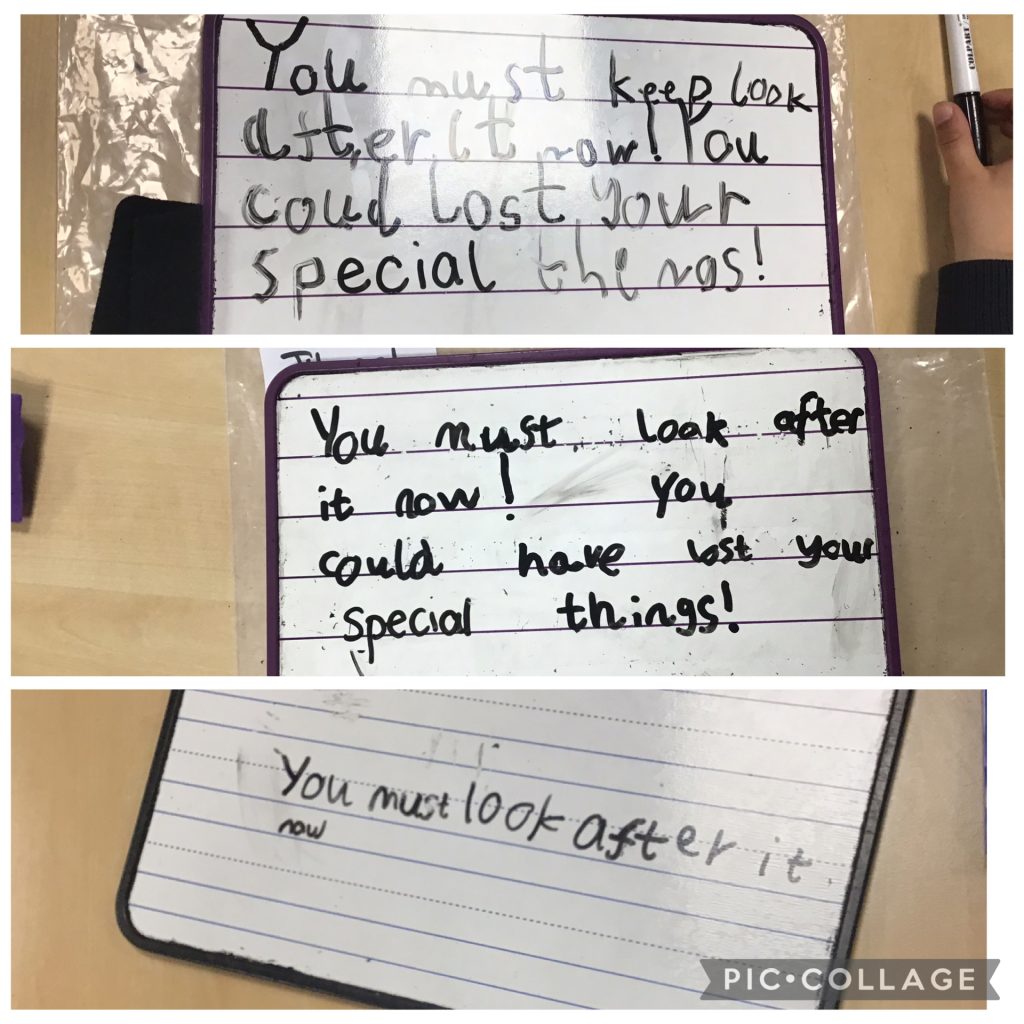 You must keep look
after it now! You
coud lost your
special thengs!
You must look after
it now! you
could have lost your
special things!
You must look after it.
now
PIC•COLLAGE